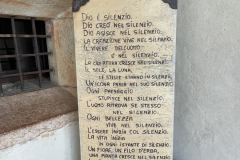 DIO È SILENZIO.
DIO CREÒ NEL SILENZIO.
DIO AGISCE NEL SILENZIO.
LA CREAZIONE VIVE NEL SILENZIO.
IL VIVERE DELL'UOMO
È NEL SILENZIO.
LA CREATURA CRESCE NEL SILENZIO.
IL SOLE, LA LUNA,
LE STELLE STANNO IN SILENZIO.
UN'ICONA PARLA NEL SUO SILENZIO.
OGNI PAESAGGIO
STUPISCE NEL SILENZIO.
L'UOMO RITROVA SE STESSO
NEL SILENZIO.
OGNI BELLEZZA
VIVE NEL SILENZIO.
L'ESSERE INIZIA COL SILENZIO.
LA VITA INIZIA
IN OGNI ISTANTE DI SILENZIO.
UN FIORE, UN FILO D'ERBA,
UNA PIANTA CRESCE NEL SILENZIO